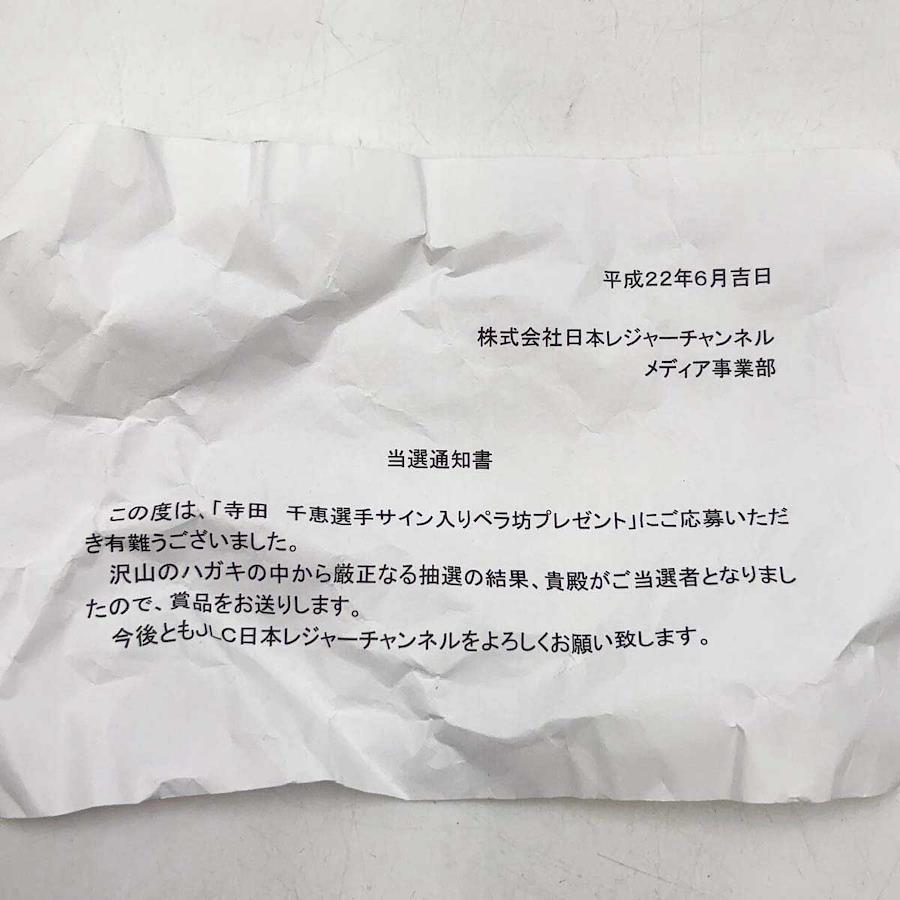 平成22年6月吉日
株式会社日本レジャーチャンネル
メディア事業部
当選通知書
この度は、「寺田　千恵選手サイン入りペラ坊プレゼント」にご応募いただ
き有難うございました。
沢山のハガキの中から厳正なる抽選の結果、貴殿がご当選者となりまし
たので、賞品をお送りします。
今後ともJLC日本レジャーチャンネルをよろしくお願い致します。